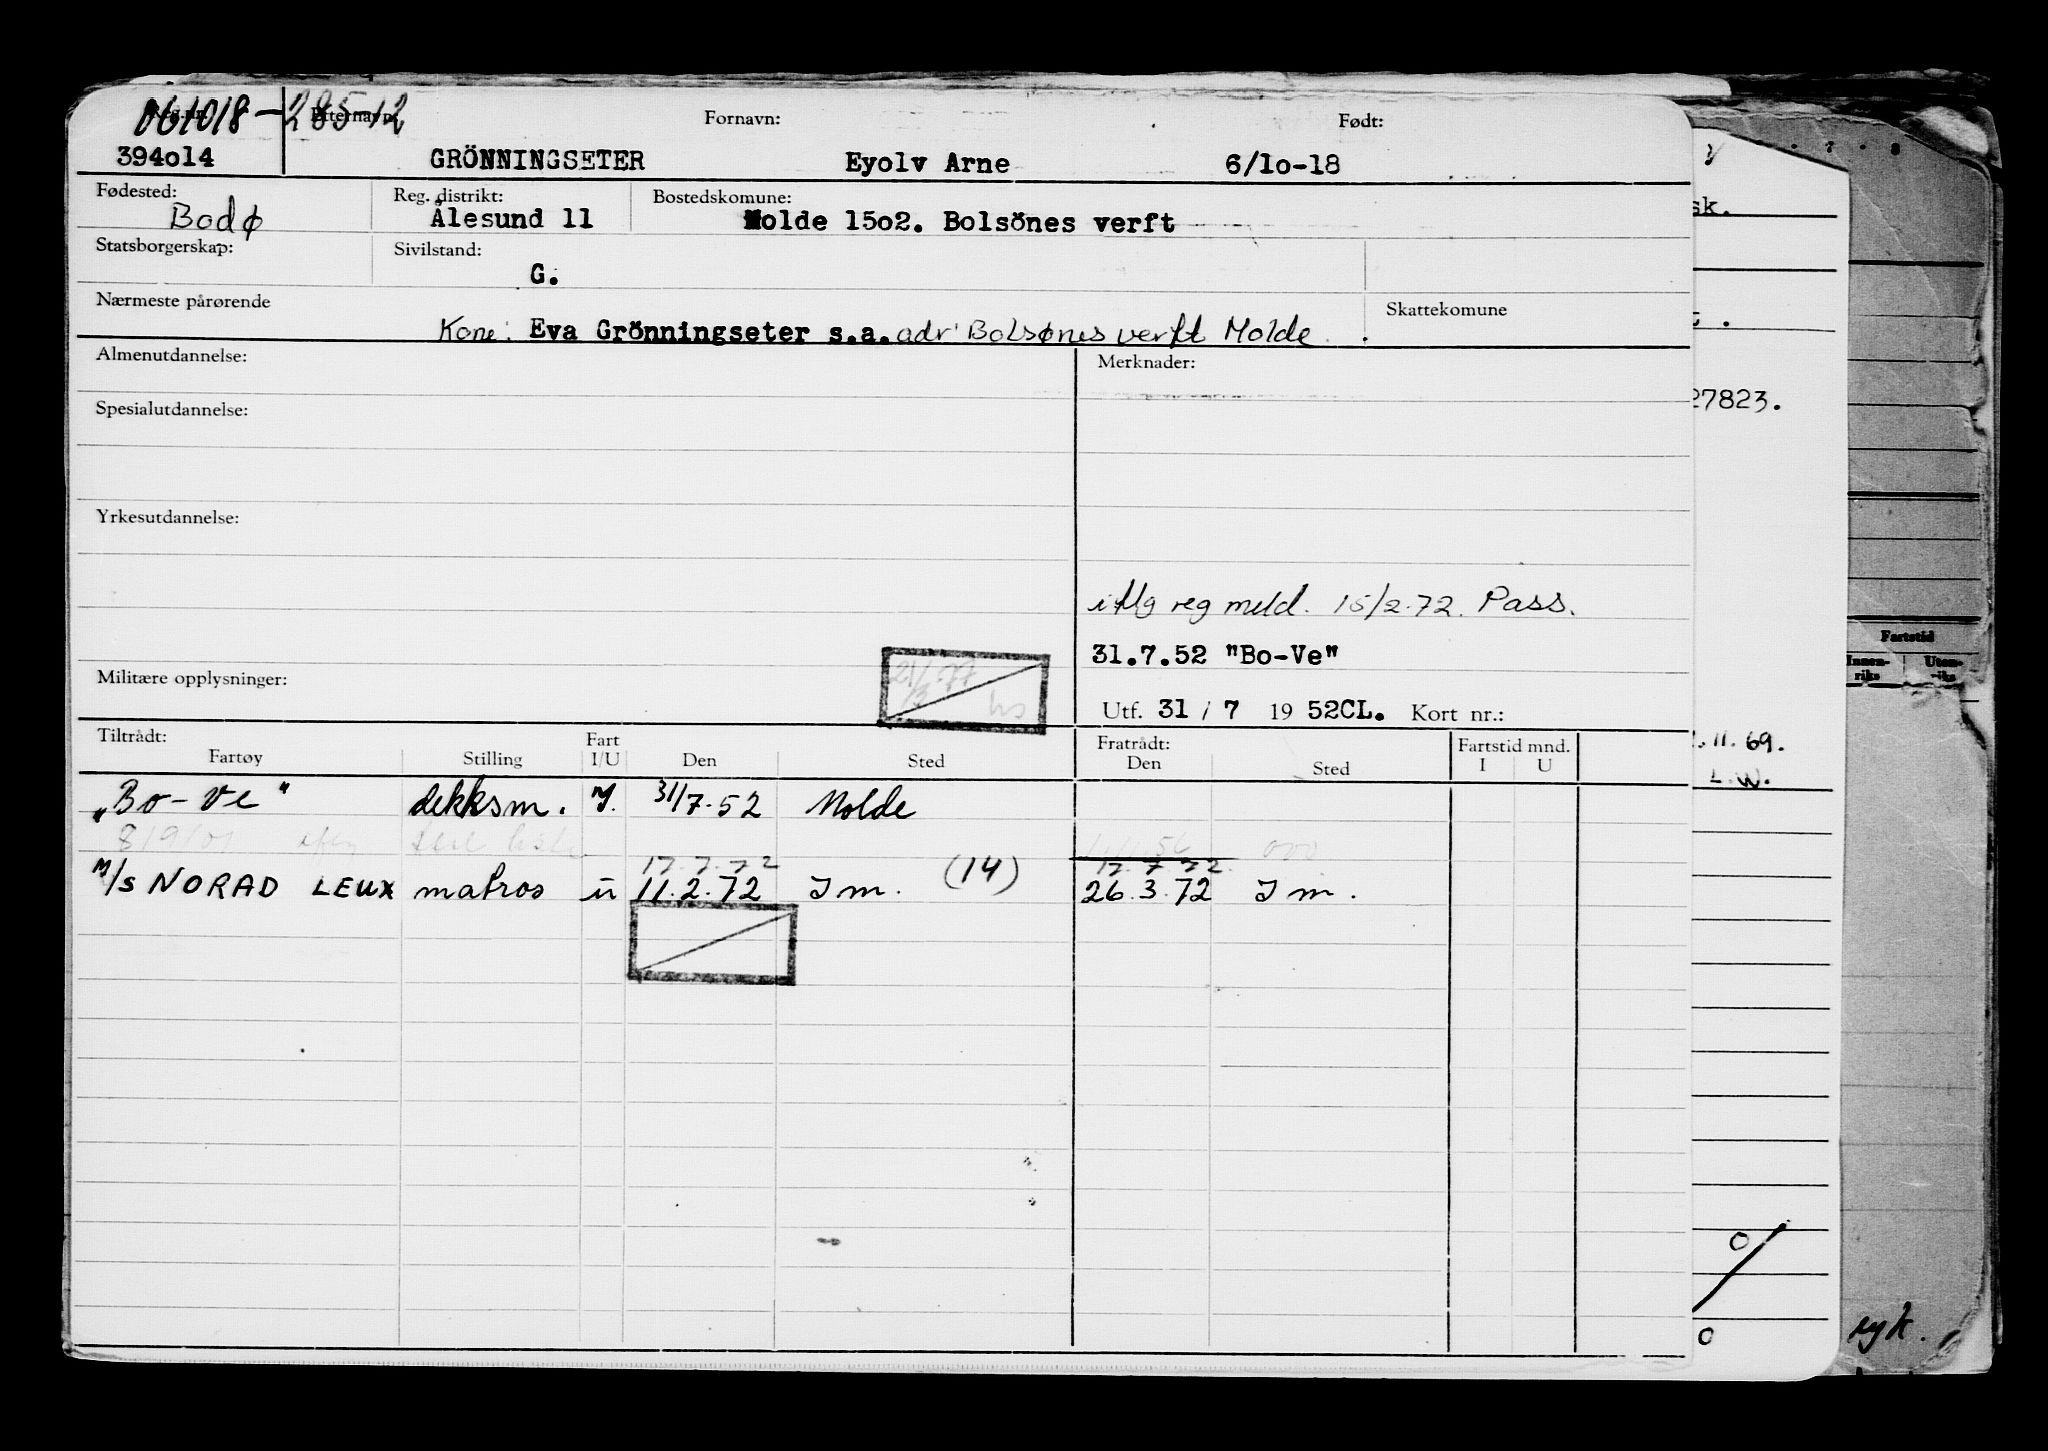 061018-285-12
Etternavn: Fornavn: Født:
394o14 GRÖNNINGSETER Eyolv Arne 6/1o-18
Fødested: Reg. distrikt: Bostedskomune:
Bodø Ålesund 11 Molde 15o2. Bolsönes verft
Statsborgerskap: Sivilstand:
G.
Nærmeste pårørende Skattekomune
Kone: Eva Grönningseter s.a. adr. Bolsønes verft Molde.
Almenutdannelse: Merknader:
27823.
Spesialutdannelse:
Yrkesutdannelse:
iflg reg meld. 15/2.72. Pass.
Fartstid
31.7.52 "Bo-Ve"
Innen-riks Uten-riks
Militære opplysninger:
Utf. 31/7 19 52CL. Kort nr.:
Tiltrådt: Fratrådt: Fartstid mnd.
Fartøy Stilling Fart I/U Den Sted Den Sted I U
.11.69.
L.W.
"Bo-Ve" dekksm. 31/7.52 Molde
17.7.72 17.7.72
M/S NORAD LEUX matros u 11.2.72 Im. (14) 26.3.72 Im.
0
0